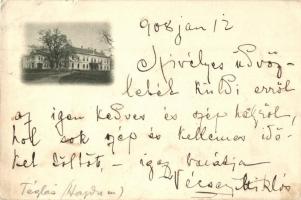 908 jan 12
Szívélyes üdvöz-
letét küldi erről
az igen kedves és szép helyről,
hol sok szép és kellemes idő-
ket töltött, – igaz barátja
Vécsey Miklós
Téglás (Hajdu m)